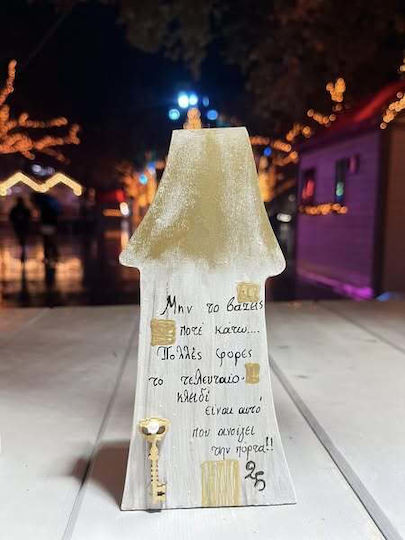 Μην το βάζεις
ποτέ κάτω...
Πολλές φορές
το τελευταίο
κλειδί
είναι αυτό
που ανοίγει
την πόρτα!!
25